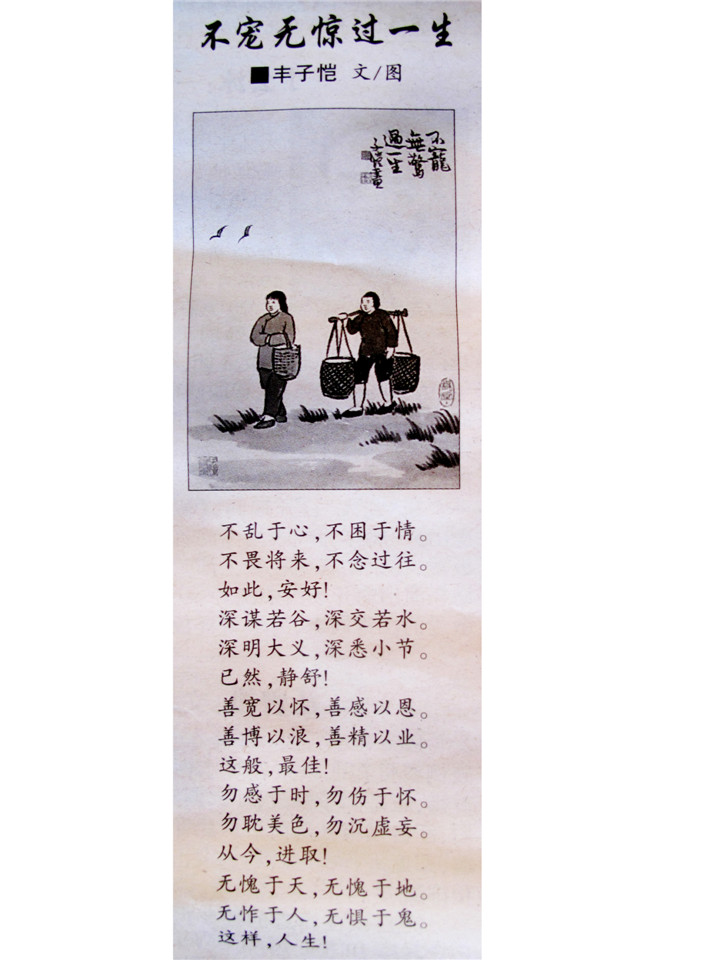 不宠无惊过一生
■丰子恺 文/图
不寵
無驚
過一生
子愷畫
不乱于心,不困于情。
不畏将来,不念过往。
如此,安好!
深谋若谷,深交若水。
深明大义,深悉小节。
已然,静舒!
善宽以怀,善感以恩。
善博以浪,善精以业。
这般,最佳!
勿感于时,勿伤于怀。
勿耽美色,勿沉虚妄。
从今,进取!
无愧于天,无愧于地。
无怍于人,无惧于鬼。
这样,人生!